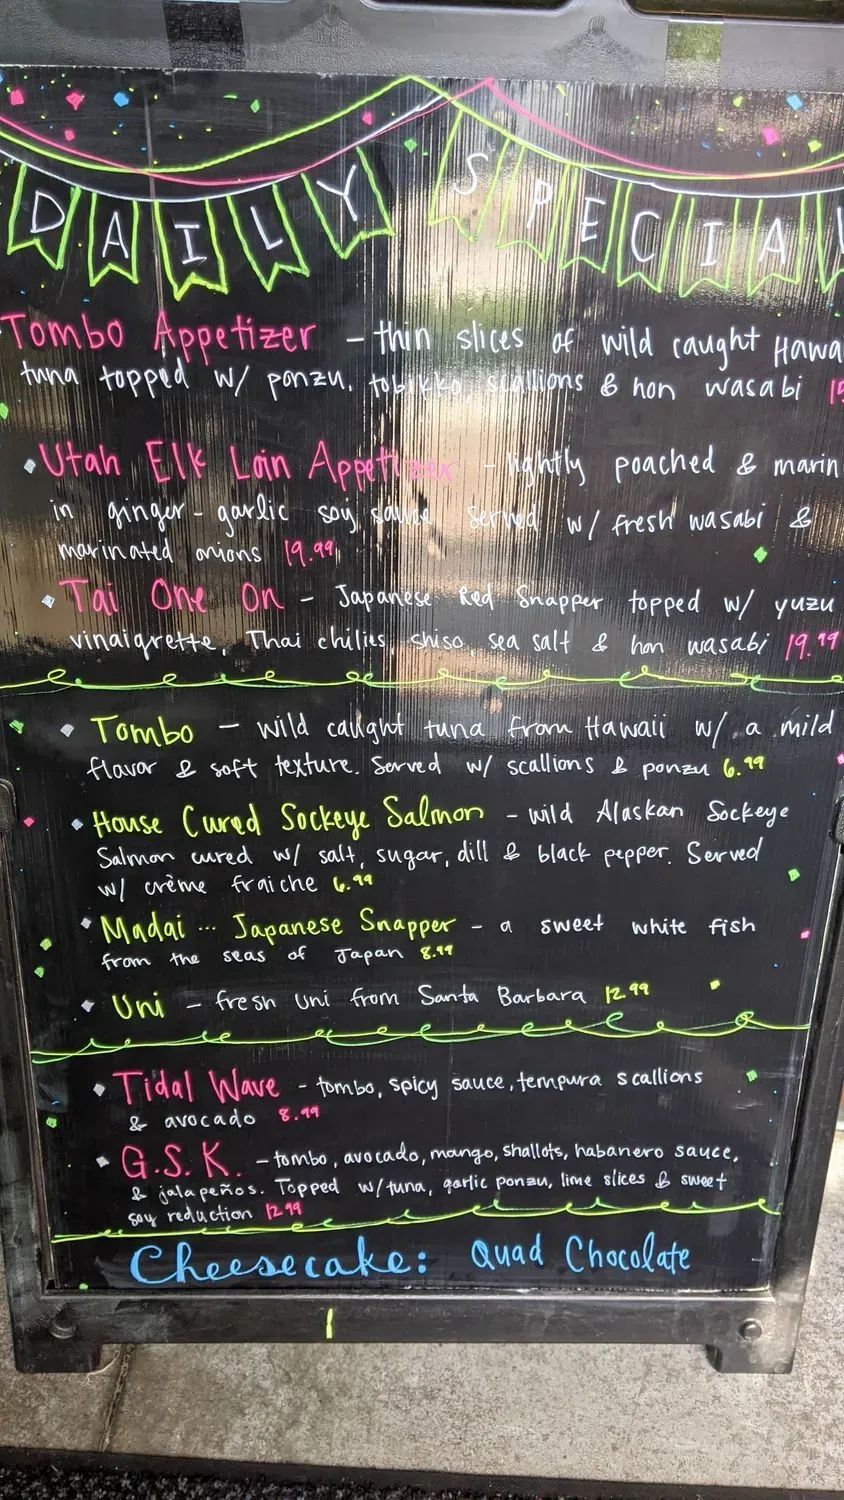 DAILY SPECIAL
Tombo Appetizer - thin slices of wild caught Hawa
tuna topped w/ ponzu, tobikko, scallions & hon wasabi
Utah Elk Loin Appetizer - lightly poached & marin
in ginger-garlic soy sauce served w/ fresh wasabi &
marinated onions 19.99
Tai One On - Japanese Red Snapper topped w/ yuzu
vinaigrette, Thai chilies, shiso, sea salt & hon wasabi 19.99
Tombo - wild caught tuna from Hawaii w/ a mild
flavor & soft texture. Served w/ scallions & ponzu 6.99
House Cured Sockeye Salmon - wild Alaskan Sockeye
Salmon cured w/ salt, sugar, dill & black pepper. Served
w/ crème fraiche 6.99
Madai ... Japanese Snapper - a sweet white fish
from the seas of Japan 8.99
Uni - fresh Uni from Santa Barbara 12.99
Tidal Wave - tombo, spicy sauce, tempura scallions
& avocado 8.99
G.S.K. - tombo, avocado, mango, shallots, habanero sauce,
& jalapeños. Topped w/ tuna, garlic ponzu, lime slices & sweet
soy reduction 12.99
Cheesecake: Quad Chocolate